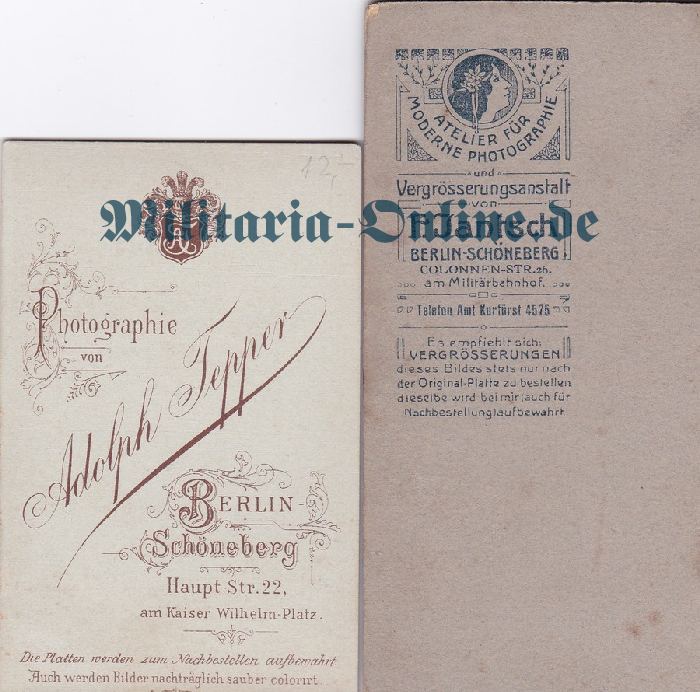 12,-
Militaria-Online.de
Photographie
von
Adolph Tepper
BERLIN-
Schöneberg
Haupt Str. 22,
am Kaiser Wilhelm-Platz.
Die Platten werden zum Nachbestellen aufbewahrt
Auch werden Bilder nachträglich sauber colorirt.
ATELIER FÜR
MODERNE PHOTOGRAPHIE
und
Vergrösserungsanstalt
von
Jantsch
BERLIN-SCHÖNEBERG,
COLONNEN-STR.26.
am Militärbahnhof.
Telefon Amt Kurfürst 4525
Es empfiehlt sich:
VERGRÖSSERUNGEN
dieses Bildes stets nur nach
der Original-Platte zu bestellen
dieselbe wird bei mir auch für
Nachbestellung aufbewahrt